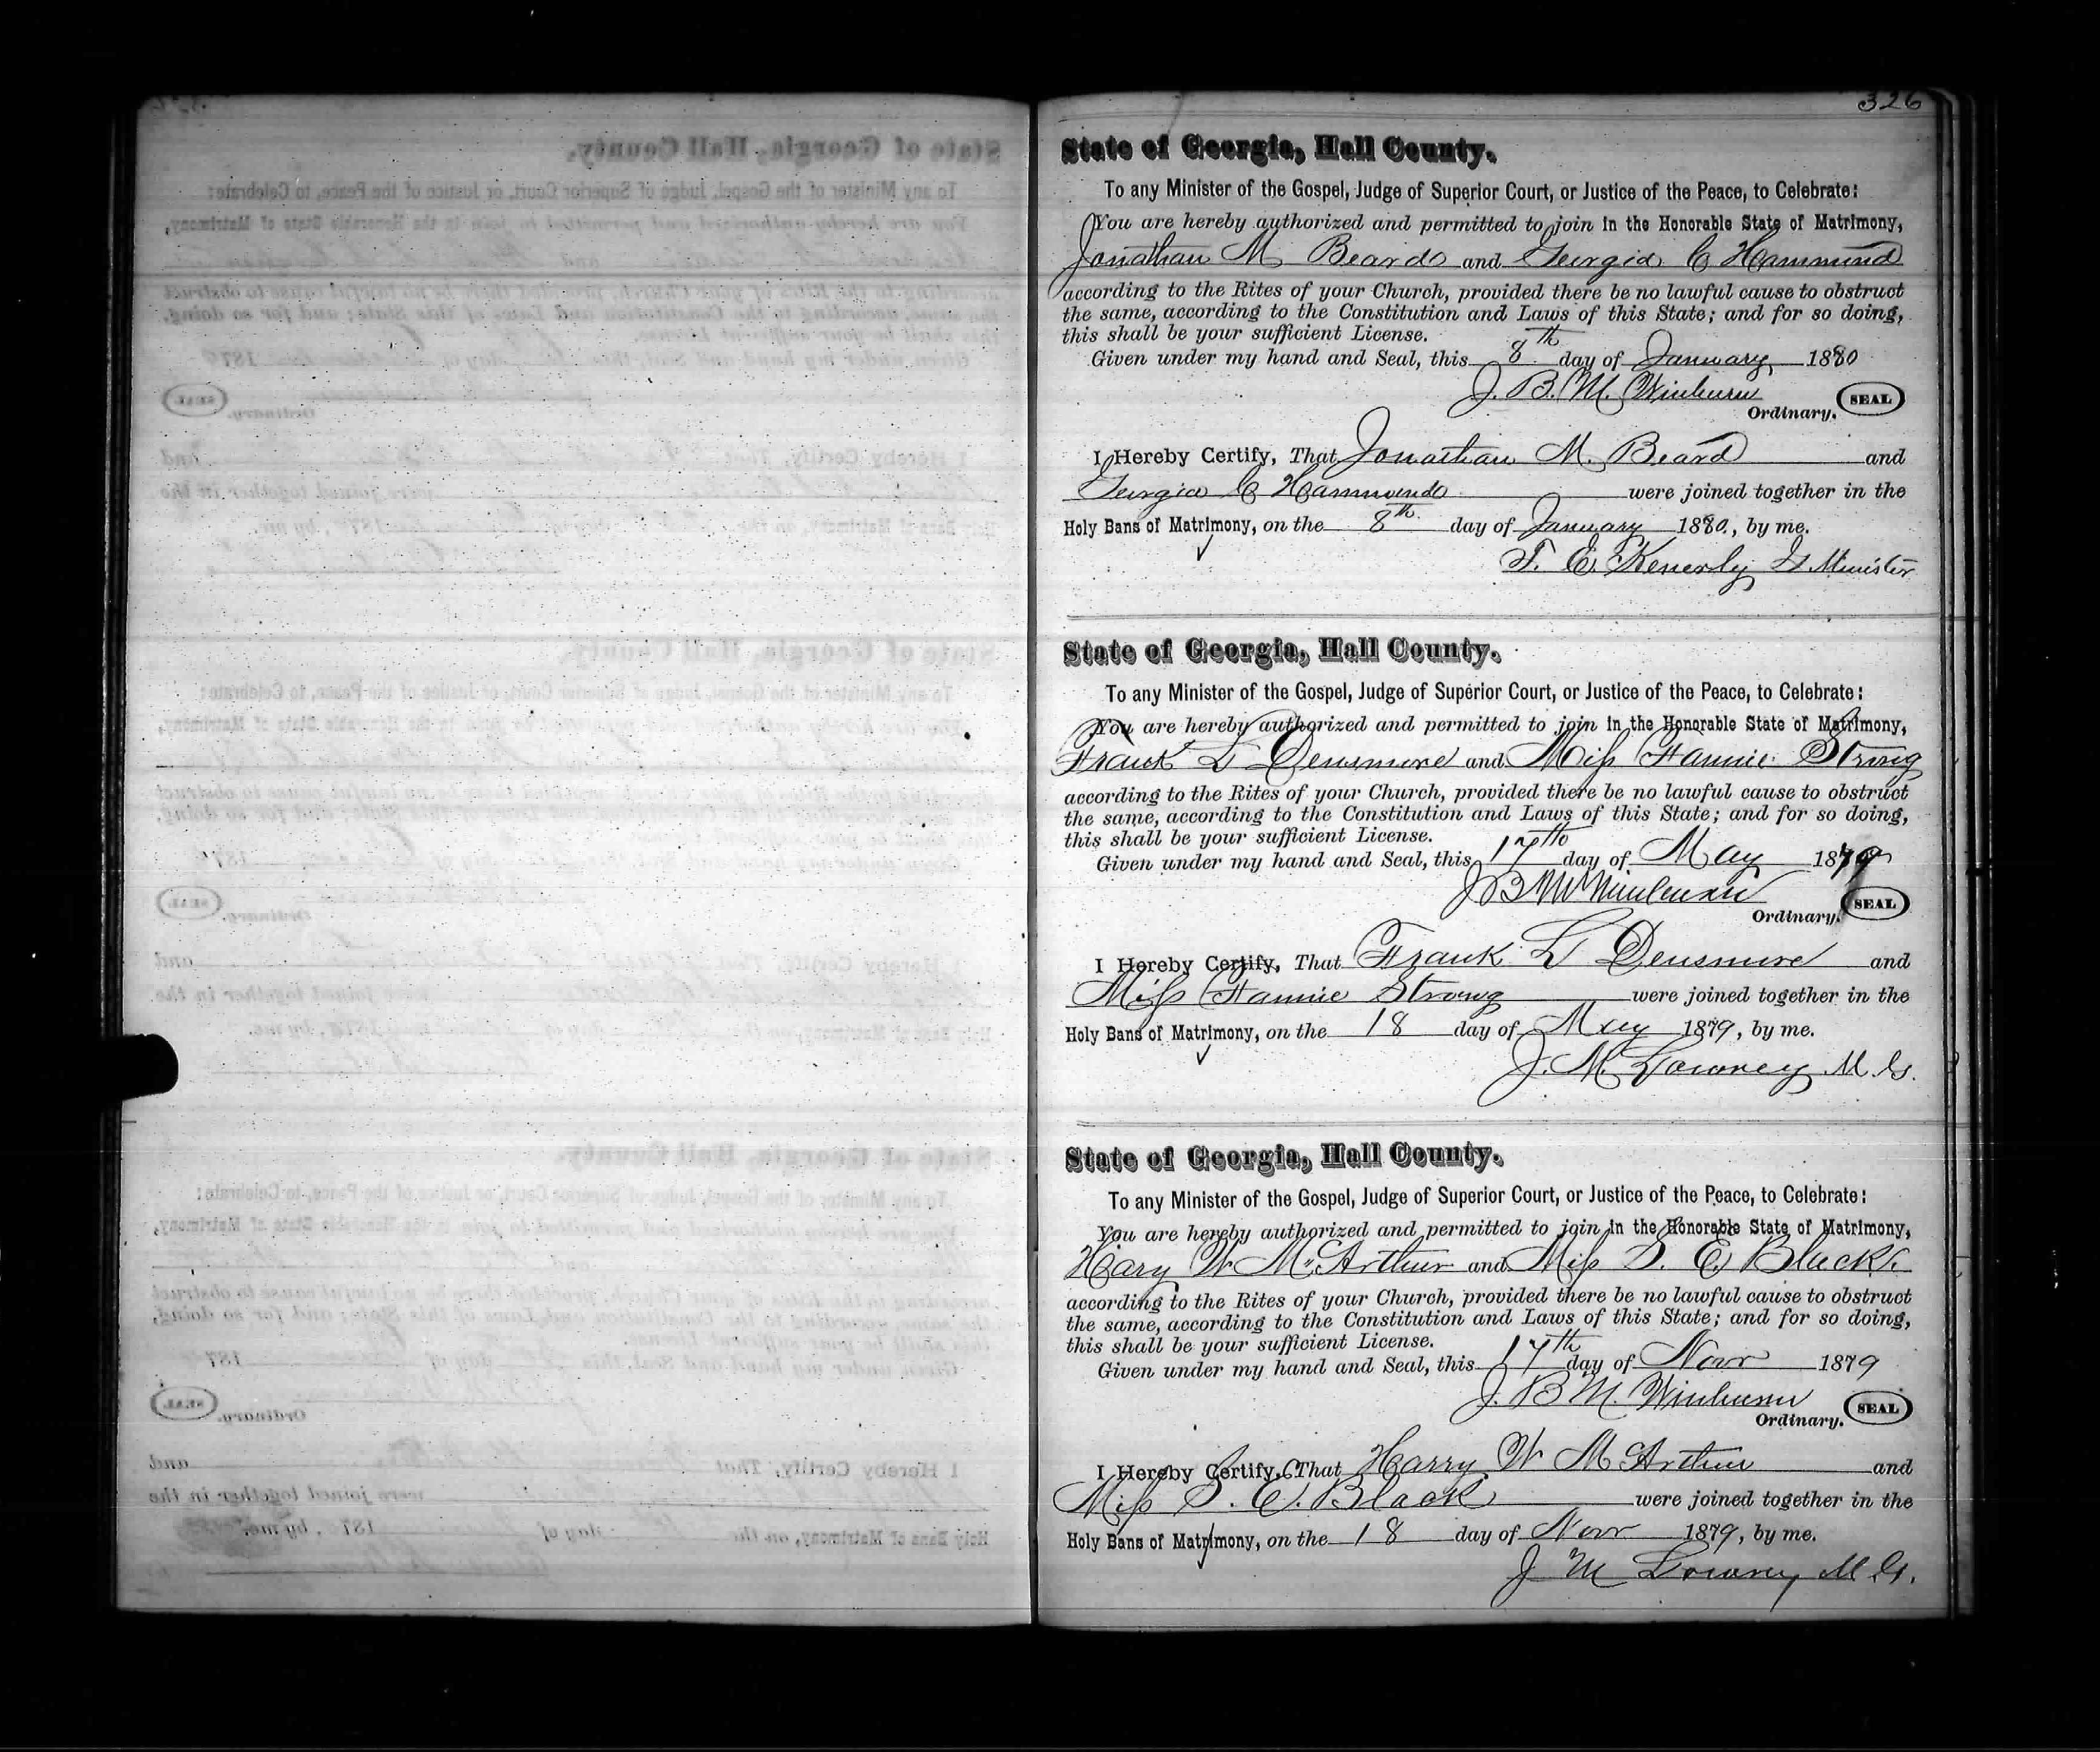 326
State of Georgia, Hall County.
To any Minister of the Gospel, Judge of Superior Court, or Justice of the Peace, to Celebrate:
You are hereby authorized and permitted to join in the Honorable State of Matrimony,
Jonathan M Beard and Georgia C Hammond
according to the Rites of your Church, provided there be no lawful cause to obstruct
the same, according to the Constitution and Laws of this State; and for so doing,
this shall be your sufficient License.
Given under my hand and Seal, this 8th day of January 1880
J. B. M. Winburn
Ordinary. SEAL
I Hereby Certify, That Jonathan M. Beard and
Georgia C Hammond were joined together in the
Holy Bans of Matrimony, on the 8th day of January 1880, by me.
T. E. Kenerly Minister
State of Georgia, Hall County.
To any Minister of the Gospel, Judge of Superior Court, or Justice of the Peace, to Celebrate:
You are hereby authorized and permitted to join in the Honorable State of Matrimony,
Frank L Densmore and Miss Fannie Strong
according to the Rites of your Church, provided there be no lawful cause to obstruct
the same, according to the Constitution and Laws of this State; and for so doing,
this shall be your sufficient License.
Given under my hand and Seal, this 17th day of May 1879
J B M Winburn
Ordinary. SEAL
I Hereby Certify, That Frank L Densmore and
Miss Fannie Strong were joined together in the
Holy Bans of Matrimony, on the 18 day of May 1879, by me.
J. M. Downey M. G.
State of Georgia, Hall County.
To any Minister of the Gospel, Judge of Superior Court, or Justice of the Peace, to Celebrate:
You are hereby authorized and permitted to join in the Honorable State of Matrimony,
Hary W McArthur and Miss S. E. Black
according to the Rites of your Church, provided there be no lawful cause to obstruct
the same, according to the Constitution and Laws of this State; and for so doing,
this shall be your sufficient License.
Given under my hand and Seal, this 17th day of Novr 1879
J. B M. Winburn
Ordinary. SEAL
I Hereby Certify, That Harry W McArthur and
Miss S. E. Black were joined together in the
Holy Bans of Matrimony, on the 18 day of Novr 1879, by me.
J M Downey M. G.